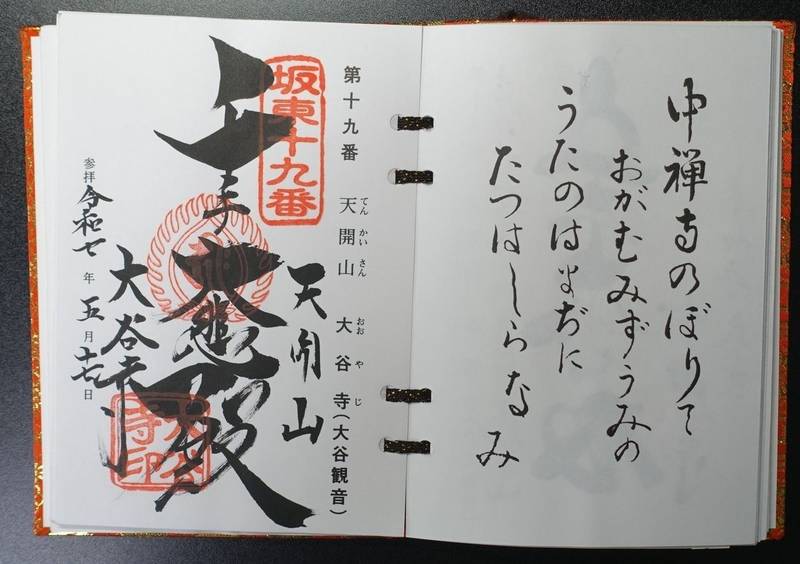 中禅寺のぼりて
おがむみずうみの
うたのはまぢに
たつはしらなみ
第十九番 天開山 大谷寺(大谷観音)
てんかいさん おおやじ
坂東十九番
天開山
千手大悲殿
大谷寺
大谷寺印
参拝令和七年五月十七日